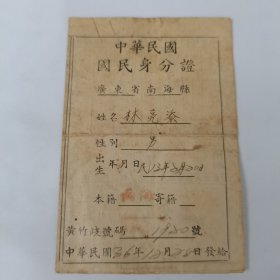 中華民國
國民身分證
廣東省南海縣
姓名 林
性別 男
出生 年月日 民12年8月20日
本籍 南海 寄籍
黃竹岐號碼 1920號
中華民國36年12月28日發給